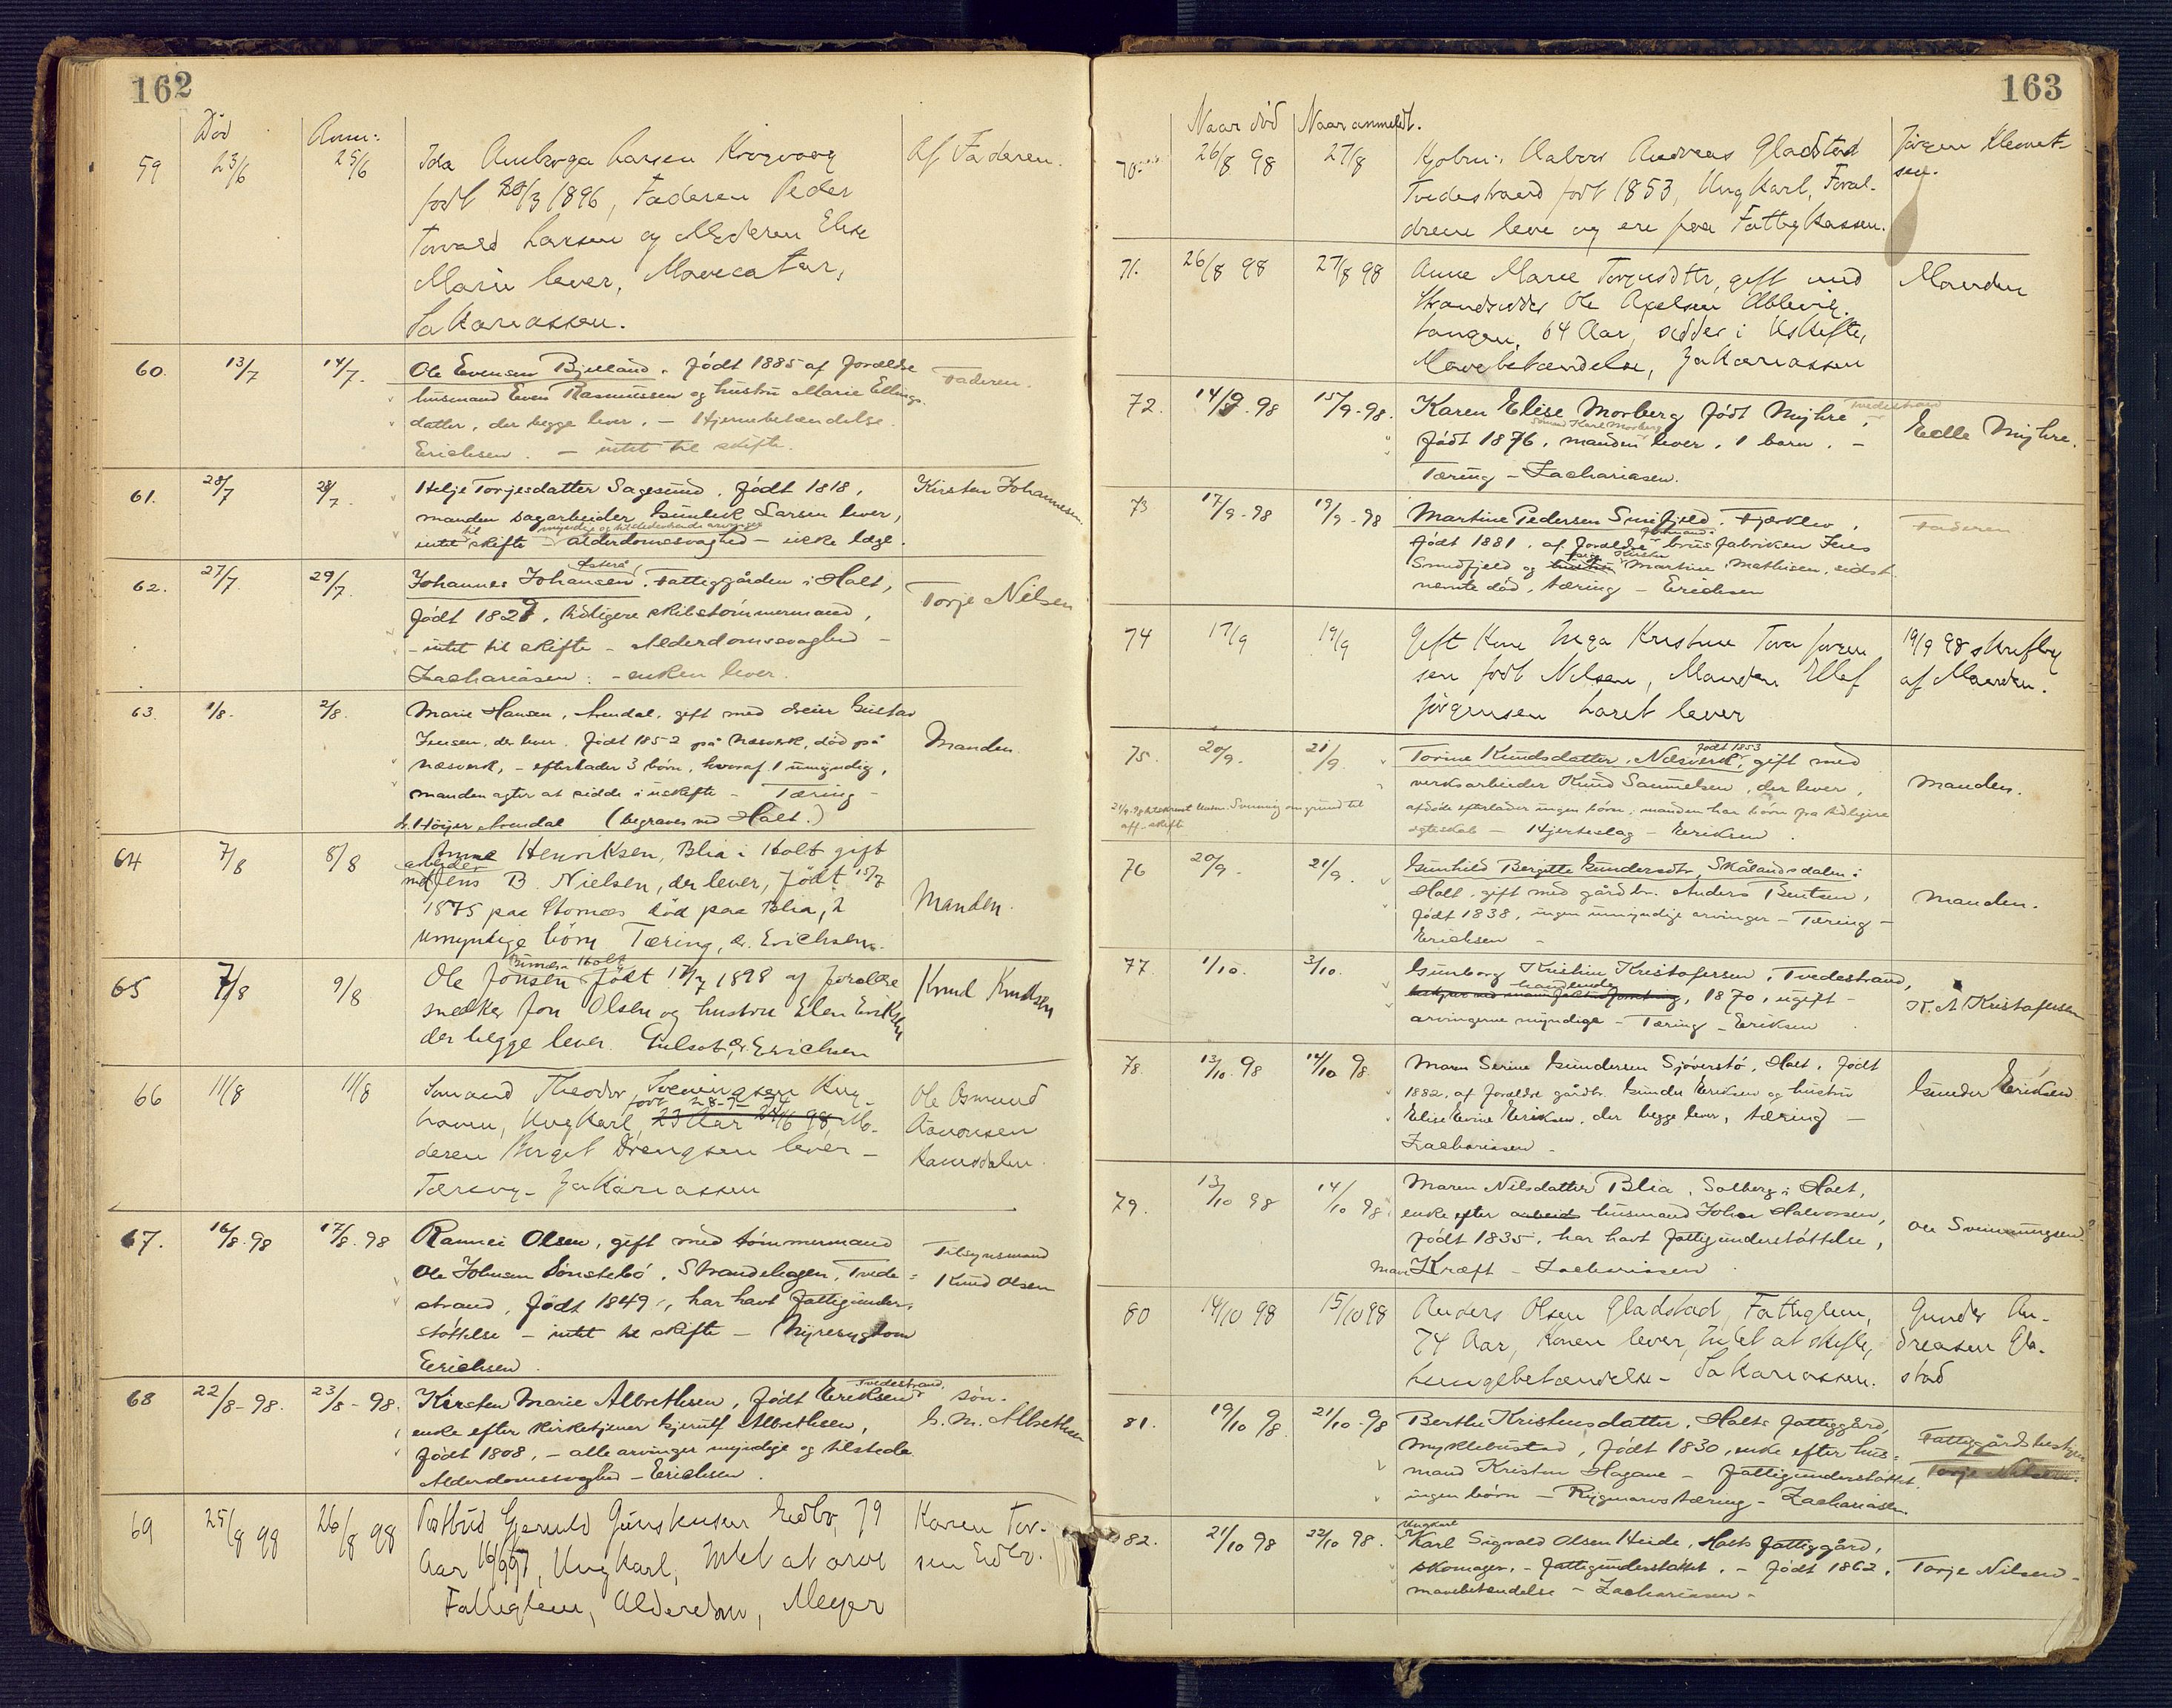 162
Död Anm:
59 23/6 25/6 Ida Ambroga Larsen Krogvaag Af Faderen.
født 20/3 1896, Faderen Peder
Torvald Larsen og Moderen Elise
Marie lever, Mavecatar,
Sakariassen.
60. 13/7 14/7. Ole Evensen Bjelland. Født 1885 af forældre Faderen.
husmand Even Rasmussen og hustru Marie Ellings-
datter, der begge lever. – Hjernebetændelse.
Erichsen. – intet til skifte.
61. 28/7 28/7. Helje Torjesdatter Sagesund. Født 1818, Kirsten Johannesen.
manden sagarbeider Gunleik Larsen lever,
myndige og tilstedeværende arvinger
intet til skifte – alderdomssvaghed – ikke læge.
62. 27/7. 29/7. Johannes Johansen Østerå, Fattiggården i Holt, Torje Nilsen
født 1829, tidligere skibstømmermand,
– intet til skifte – Alderdomssvaghed –
Zachariasen. – enken lever.
63. 1/8. 2/8. Marie Hansen, Arendal, gift med dreier Gustav Manden.
Jensen, der lever. Født 1852 på Næsverk, død på
Næsverk, – efterlader 3 børn, hvoraf 1 umyndig,
manden agter at sidde i uskifte – Tæring –
dr. Höyer Arendal (begraves ved Holt.)
64 7/8 8/8 Anne Henriksen, Blia i Holt gift Manden.
med arbeider Jens B. Nielsen, der lever, født 15/7
1875 paa Stornæs død paa Blia, 2
umyndige börn Tæring, dr. Erichsen.
65 7/8 9/8 Ole Jonsen født 17/7 1898 af forældre Knud Knudsen
snedker Jon Olsen og hustru Elen Eriksen
der begge lever. Gulsot, dr. Erichsen
66 11/8 11/8 Sömand Theodor Sveningsen Ole Osmund
haven, Ungkarl, født 28-9-74 23 Aar 24/6 98, Mo- Aanonsen
deren Birgit Drengsen lever – Ramsdalen.
Tæring – Zakariassen
67. 16/8.98 17/8.98 Ramei Olsen, gift med tømmermand Tilsynsmand
Ole Johnsen Sønstebö, Strandehagen, Tvede- Knud Olsen
strand, født 1849, har havt fattigunder-
støttelse – intet til skifte – Nyresygdom
Erichsen.
68 22/8-98. 23/8-98. Kirsten Marie Albrethsen, født Eriksen Tvedestrand. søn.
enke efter kirketjener Gjerulf Albrethsen, G. M. Albrethsen
født 1808, – alle arvinger myndige og tilstede.
Alderdomssvaghed – Erichsen.
69 25/8 98 26/8 98 Postbud Gjeruld Gunstensen Eidbo, 79 Karen Tor-
Aar, Ungkarl, Intet at arve sen Eidbo.
Fattiglem, Alderdom, Meyer
163
Naar död Naar anmeldt.
70. 26/8 98 27/8 Andreas Gladstad Jörgen Klemet-
Tvedestrand født 1853, Ungkarl, Foræl- sen.
drene leve og ere paa Fattigkassen.
71. 26/8 98 27/8 98 Anne Marie Torjusdtr, gift med Manden
Strandsidder Ole Axelsen Ablevig-
tangen, 64 Aar, sidder i Uskifte,
Mavebetændelse, Zakariassen
72. 14/9.98 15/9-98. Karen Elise Morberg født Myhre, Tvedestrand Eelle Myhre.
født 1876, manden sømand Karl Morberg lever, 1 barn. –
Tæring – Zachariasen.
73 17/9-98 19/9-98 Martine Pedersen Snefjeld. Fjærkleiv, Faderen
født 1881, af forældre formand brusfabriken Jens
Smedfjeld og hustru Martine Mathisen, sidst
nævnte død, tæring – Erichsen
74 17/9 19/9 Gift Kone Inga Kristine Tora Jörgen 19/9 98 skriftlig
sen født Nilsen, Manden Ellef af Manden.
Jörgensen Laret lever
75. 20/9. 21/9. Torine Knudsdatter, Næsverk, født 1853 gift med Manden.
verksarbeider Knud Samuelsen, der lever,
afdøde efterlader ingen børn, manden har børn fra tidligere
ægteskab – Hjerteslag – Eriksen.
76 20/9. 21/9. Gunhild Bergitte Gundersdtr, Skålandsdalen i Manden.
Holt, gift med gårdbr. Anders Bentsen,
født 1838, ingen umyndige arvinger – Tæring –
Erichsen –
77 1/10. 3/10. Gunborg Kristine Kristofersen, Tvedestrand, K. A. Kristofersen
handlende, 1870, ugift –
arvingerne myndige – Tæring – Eriksen
78. 13/10.98 14/10 98. Maren Serine Gundersen Sjöverstö, Holt, født Gunder Eriksen
1882, af forældre gårdbr. Gunder Eriksen og hustru
Elise Evine Eriksen, der begge lever, tæring –
Zachariasen –
79. 13/10 98 14/10 98. Maren Nilsdatter Blia, Solberg i Holt, Ole Sveinungsen
enke efter arbeid husmand John Halvorsen,
født 1835, har havt fattigunderstøttelse,
Mave Kræft – Zachariasen
80 14/10 98 15/10 98 Anders Olsen Gladstad, Fattiglem, Gunder An-
74 Aar, Konen lever, Intet at skifte, dreasen Gla-
Lungebetændelse – Sakariassen. stad
81. 19/10 98. 21/10.98 Berthe Kristensdatter, Holts fattiggård, Fattiggårdsbestyrer
Myklebustad, født 1830, enke efter hus- Torje Nilsen.
mand Kristen Hagane – fattigunderstøttet.
ingen børn – Rygmarvstæring – Zachariasen
82. 21/10 98 22/10 98. Ungkarl Karl Sigvald Olsen Heide, Holts fattiggård, Torje Nilsen –
skomager, – fattigunderstøttet. – født 1862.
mavebetændelse – Zachariasen –